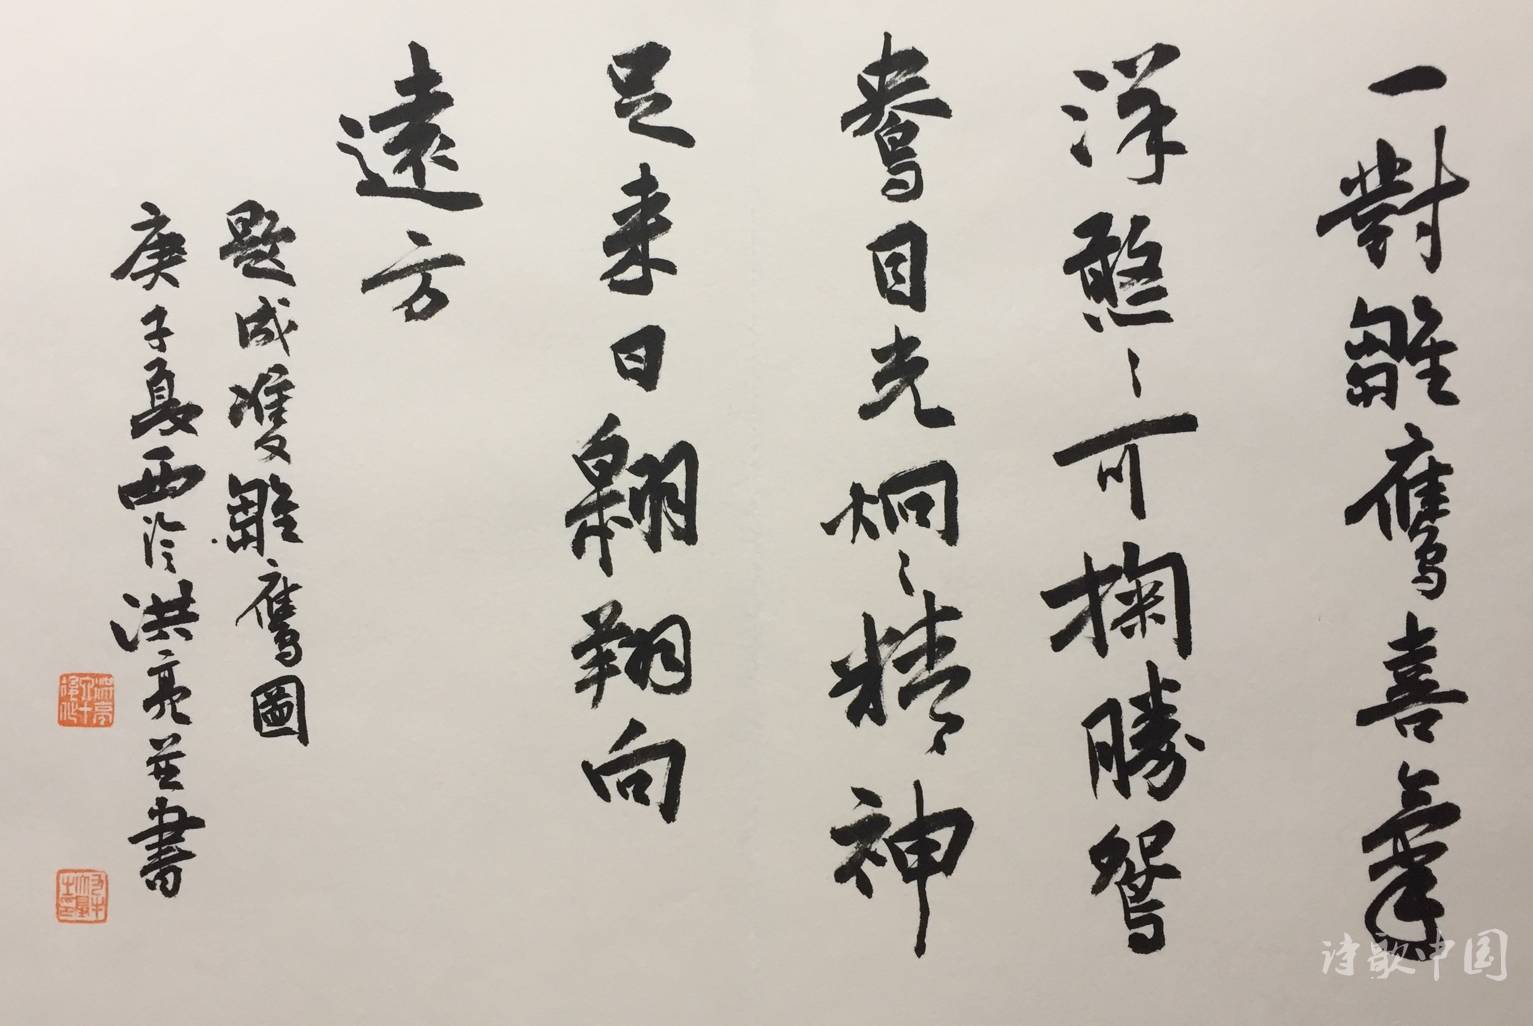 一對雛鷹喜氣
洋憨〻可掬勝鴛
鴦目光炯〻精神
足來日翱翔向
遠方
題成雙雛鷹圖
庚子夏西泠洪亮並書
诗歌中国